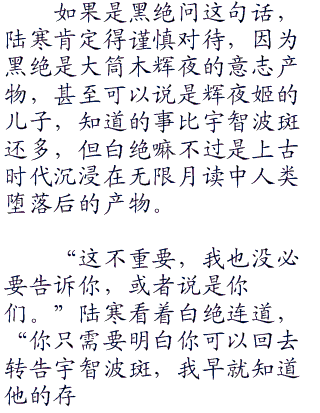 如果是黑绝问这句话，
陆寒肯定得谨慎对待，因为
黑绝是大筒木辉夜的意志产
物，甚至可以说是辉夜姬的
儿子，知道的事比宇智波斑
还多，但白绝嘛不过是上古
时代沉浸在无限月读中人类
堕落后的产物。
“这不重要，我也没必
要告诉你，或者说是你
们。”陆寒看着白绝连道，
“你只需要明白你可以回去
转告宇智波斑，我早就知道
他的存